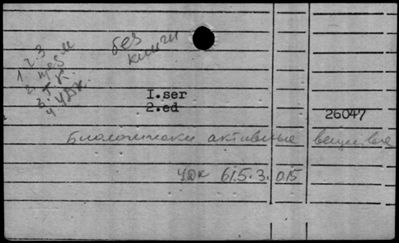 без
книги
1. 2 3
2. пред м
3. Т К
4 УДК.
I.ser
2.ed
26047
Биологически активные вещества
УДК 615.3.015